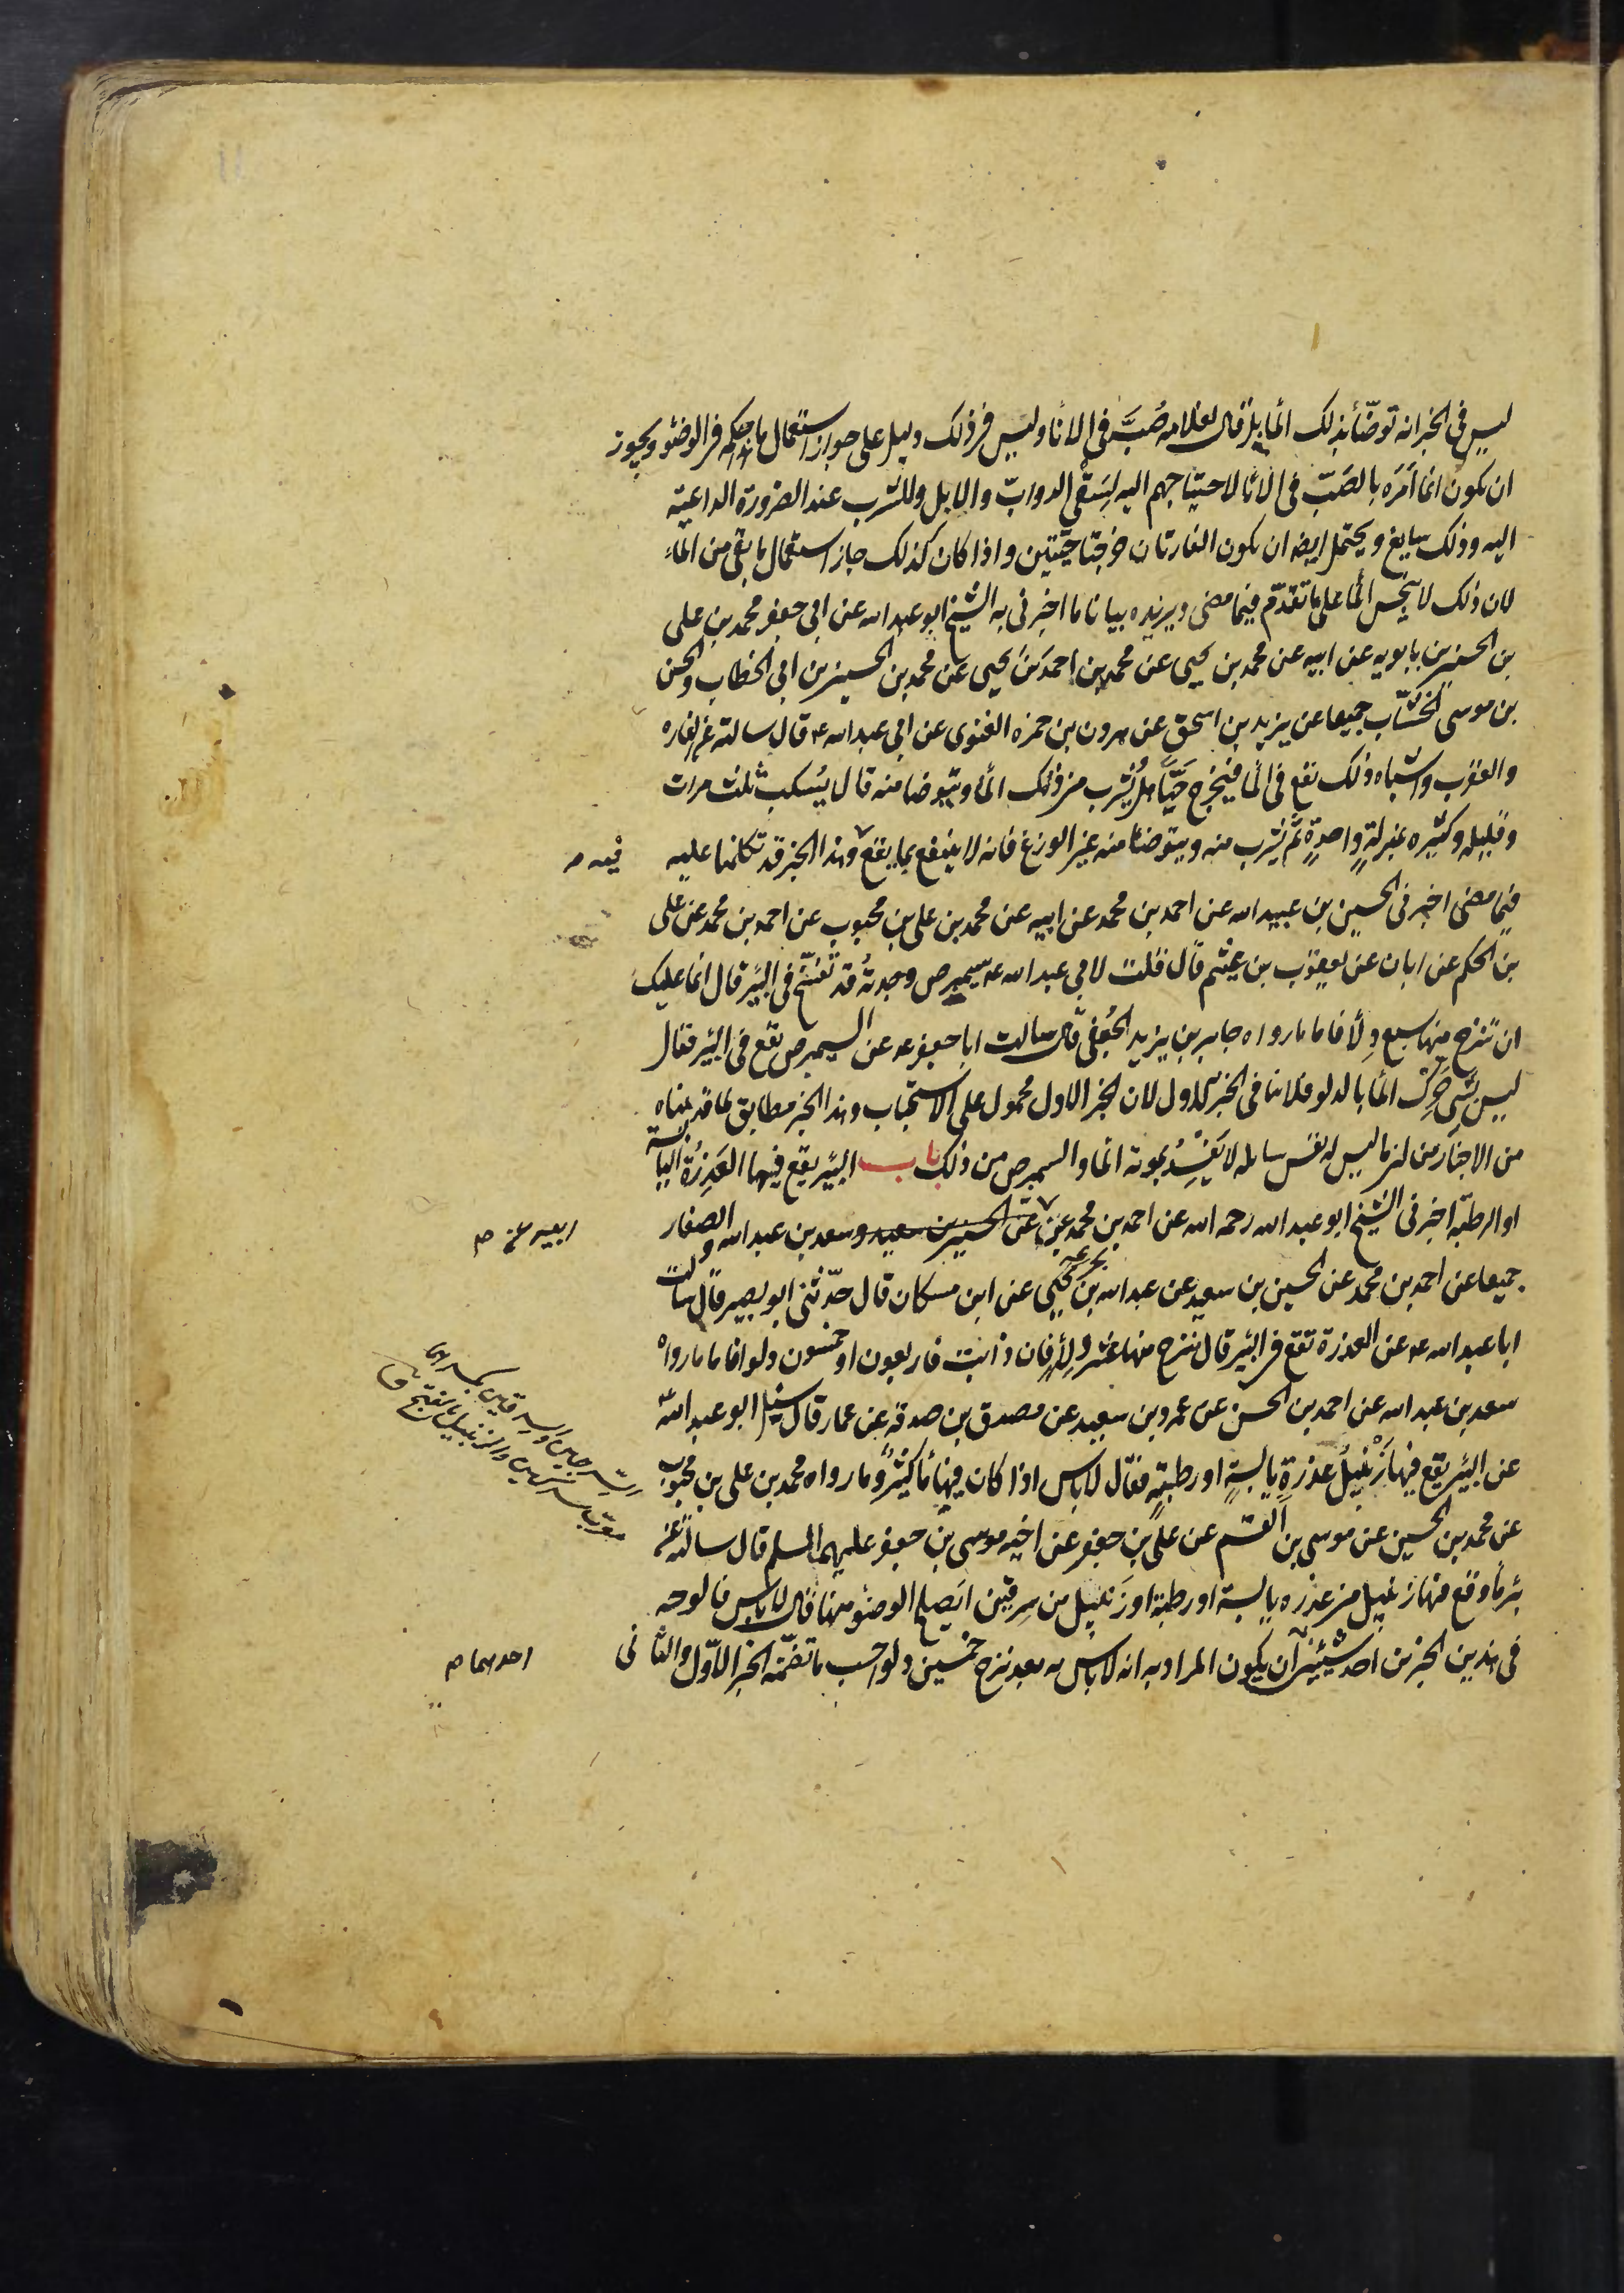 ليس في الخبر انه توضّأ بذلك المأ بل قال لغلامه صُبَّ في الانأ وليس في ذلك دليل على جواز استعمال ما هذا حكمه في الوضؤ ويجوز
ان يكون انما اَمَرَه بالصَبّ في الانأ لاحتياجهم اليه لِسَقْي الدوابّ والابل وللشرب عند الضرورة الداعية
اليه وذلك سايغ ويحتمل ايضا ان يكون الفارتان خرجتا حيّتين واذا كان كذلك جاز استعمال ما بقى من المأ
لان ذلك لا ينجس المأ على ما تقدّم فيما مضى ويزيده بيانا ما اخبرنى به الشيخ ابو عبد الله عن ابي جعفر محمد بن على
بن الحسين بن بابويه عن ابيه عن محمد بن يحيى عن محمد بن احمد بن يحيى عن محمد بن الحسين بن ابي الخطاب والحسن
بن موسى الخشّاب جميعا عن يزيد بن اسحق عن هرون بن حمزه الغنوى عن ابي عبد الله ع قال سالته عن الفاره
والعقرب واشباه ذلك تقع في المأ فيخرج حَيّاً هل يُشرب من ذلك المأ ويتوضا منه قال يُسكب ثلث مرات
وقليله وكثيره بمنزلةٍ واحدةٍ ثم يُشرب منه ويتوضأ منه غير الوزغ فانه لا ينتفع بما يقع وهذا الخبر قد تكلمنا عليه
فيه
فيما مضى اخبرنى الحسين بن عبيد الله عن احمد بن محمد عن ابيه عن محمد بن على بن محبوب عن احمد بن محمد عن على
بن الحكم عن ابان عن يعقوب بن عيثم قال قلت لابي عبد الله ع سيمبرص وجدتُه قد تفسّخ في البئر قال انما عليك
ان تنزح منها سبع دِلأ فاما ما رواه جابر بن يزيد الجُعفى قال سالت ابا جعفر ع عن السيمبرص تقع في البئر فقال
ليس بشى حرّك المأ بالدلو فلا ينافى الخبر الاول لان الخبر الاول محمول على الاستحباب وهذا الخبر مطابق لما قدمناه
من الاخبار من ان ما ليس له نفس سائله لا يُفسِدُ بموته المأ والسيمبرص من ذلك باب البئر يقع فيها العَذِرَةُ اليابسة
او الرطبة اخبرنى الشيخ ابو عبد الله رحمه الله عن احمد بن محمد عن عن الحسين بن سعيد وسعد بن عبد الله والصفار
ابيه عن
جميعا عن احمد بن محمد عن الحسين بن سعيد عن عبد الله بن يحيى بحر عن ابن مسكان قال حدّثنى ابو بصير قال سالت
ابا عبد الله ع عن العذرة تقع في البئر قال ينزح منها عشر دِلأٍ فان ذابت فاربعون او خمسون دلوا فاما ما رواه
سعد بن عبد الله عن احمد بن الحسن عن عمرو بن سعيد عن مصدق بن صدقة عن عمار قال سئل ابو عبد الله
عن البئر يقع فيها زَنْبيلُ عذرةٍ يابسةٍ او رطبةٍ فقال لا باس اذا كان فيها مأ كثيرٌ وما رواه محمد بن على بن محبوب
عن محمد بن الحسين عن موسى بن القسم عن على بن جعفر عن اخيه موسى بن جعفر عليهم السلم قال سالته عن
بئر مأ وقع فيها زنبيل من عذره يابسة او رطبة او زنبيل من سرقين ايصلح الوضؤ منها قال لا باس فالوجه
في هذين الخبرين احد شيئين ان يكون المراد به انه لا باس به بعد نزح خمسين دلوا حسب ما تضمّنه الخبر الاوّل والثانى
احدهما